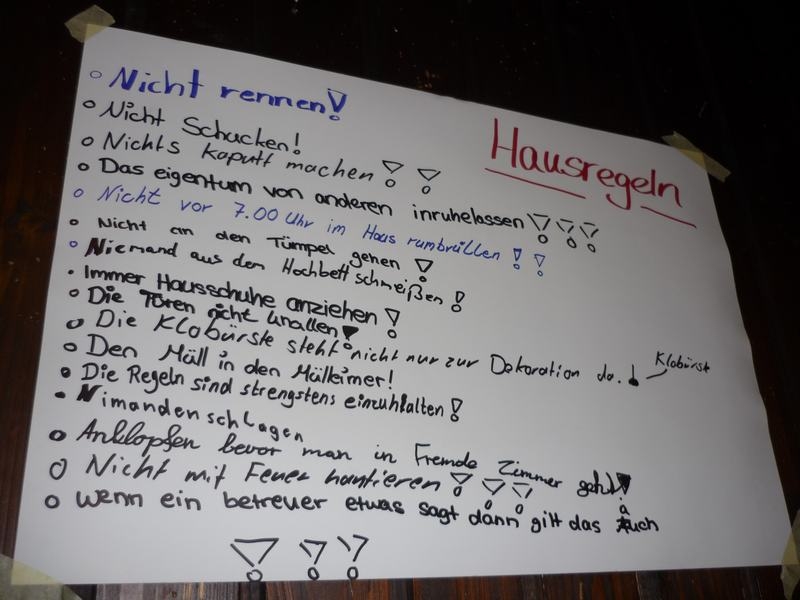 Hausregeln
Nicht rennen!
Nicht Schucken!
Nichts kaputt machen !!
Das eigentum von anderen inruhelassen !!!
Nicht vor 7.00 Uhr im Haus rumbrüllen !!
Nicht an den Tümpel gehen !
Niemand aus dem Hochbett schmeißen !
Immer Hausschuhe anziehen !
Die Türen nicht knallen!
Die Klobürste steht nicht nur zur Dekoration da. ! Klobürste
Den Müll in den Mülleimer!
Die Regeln sind strengstens einzuhlalten !
Nimanden schlagen
Anklopfen bevor man in Fremde Zimmer geht!
Nicht mit Feuer hantieren !!!
Wenn ein betreuer etwas sagt dann gilt das auch
!!!